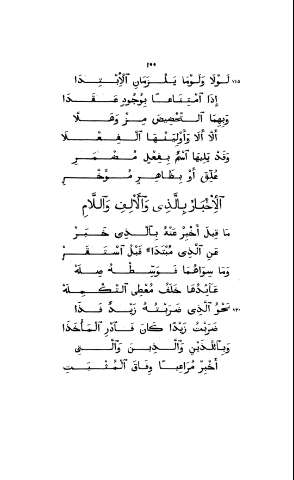 ١٩٩
٧١٥ لَوْلَا وَلَوْمَا يَلْزَمَانِ ٱلْاِبْتِدَا
إِذَا ٱمْتِنَاعًا بِوُجُودٍ عَقَدَا
وَبِهِمَا ٱلتَّحْضِيضَ مِزْ وَهَلَّا
أَلَّا أَلَا وَأَوْلِيَنْهَا ٱلْفِعْلَا
وَقَدْ يَلِيهَا ٱسْمٌ بِفِعْلٍ مُضْمَرِ
عُلِّقَ أَوْ بِظَاهِرٍ مُؤَخَّرِ
ٱلْإِخْبَارُ بِٱلَّذِى وَٱلْأَلِفِ وَٱللَّامِ
مَا قِيلَ أَخْبِرْ عَنْهُ بِٱلَّذِى خَبَرْ
عَنِ ٱلَّذِى مُبْتَدَأً قَبْلُ ٱسْتَقَرْ
وَمَا سِوَاهُمَا فَوَسِّطْهُ صِلَهْ
عَآئِدُهَا خَلَفُ مُعْطِى ٱلتَّكْمِلَهْ
٧٢٠ نَحْوُ ٱلَّذِى ضَرَبْتُهُ زَيْدٌ فَذَا
ضَرَبْتُ زَيْدًا كَانَ فَٱدْرِ ٱلْمَأْخَذَا
وَبِٱللَّذَيْنِ وَٱلَّذِينَ وَٱلَّتِى
أَخْبِرْ مُرَاعِيًا وِفَاقَ ٱلْمُثْبَتِ